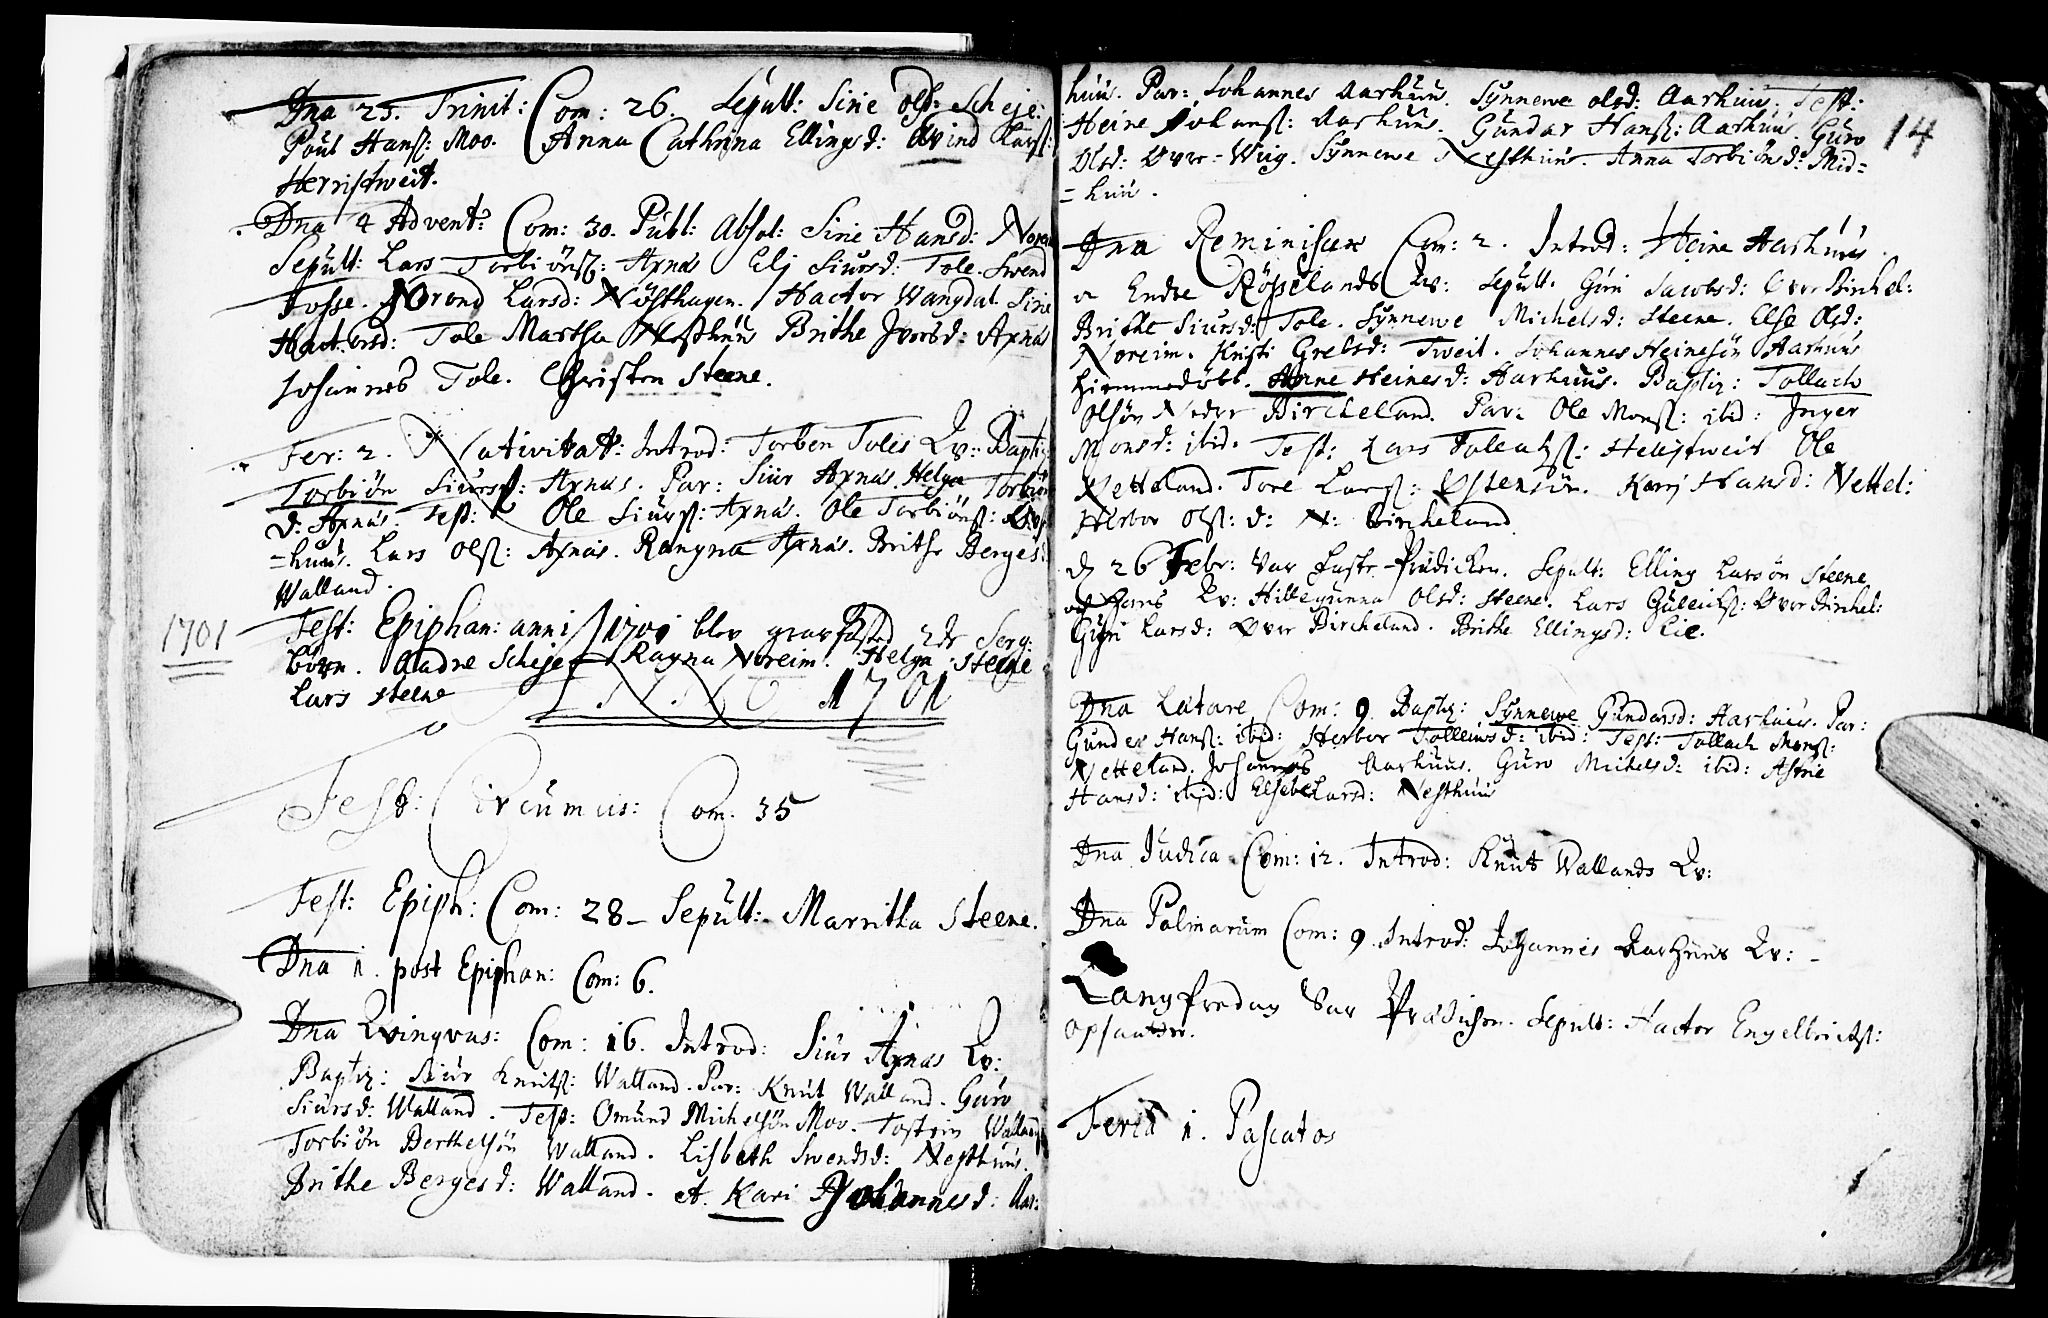 Dna 25. Trinit: Com: 26. Sepult: Sirie Olsd: Scheje:
Poul Hansß: Moo. Anna Cathrina Ellingsd: Øvind Larsß:
Herristweit.
Dna 4 Advent: Com: 30. Publ: Absol: Sirie Hansd:
Sepult: Lars Torbiönsß: Axnäs Elj Siursd: Tole. Swend
Fosse. Larsd: Nösthagen. Hactor Wangdal Sirie
Hactorsd: Tole Martha Nesthuus Brithe Iversd: Axnäs
Johannes Tole. Christen Steene.
Fer: 2. Nativitat: Introd: Torben Tolis Qv: Baptiz:
Torbiön Siursß: Axnäs. Par: Siur Axnäs. Helga Torbiöns
d: Axnäs. Test: Ole Siursß: Axnäs. Ole Torbiönsß:
=huus. Lars Olsß: Axnäs. Rangna Axnäs. Brithe Berges:
Walland.
1701
Fest: Epiphan: anni 1701 blev
börn. Aadne Scheje Ragna Noreim. Helga Steene
Lars Steene
ANNO 1701
Fest: Circumcis: Com. 35
Fest: Epiph: Com: 28 - Sepult: Marritha Steene.
Dna 1. post Epiphan: Com: 6.
Dna Qvinqvas: Com: 16. Introd: Siur Axnäs Qv:
Baptiz: Siur Knutsß: Walland. Par: Knut Walland. Guro
Siursd: Walland. Test: Omund Michelsön Moo. Tostein Walland
Torbiön Berthelsön Walland. Lisbeth Swendsd: Nesthuus.
Brithe Bergesd: Walland. et. Kari Johannesd: Aar:
14
huus. Par: Johannes Aarhuus. Synnewe Olsd: Aarhuus. Test:
Heine Johansß: Aarhuus. Gundar Hansß: Aarhuus. Guro
Olsd: Øvre-Wiig. Synnewe Nesthuus. Anna Torbiönsd: Mid=
=huus.
Dna Reminiscere Com: 2. Introd: Heine Aarhuus
Endre Rösselands Qv: Sepult. Guri Jacobsd: Over Birchel:
Brithe Siursd: Tole. Synnewe Michelsd: Steene. Else Olsd:
Noreim. Kristi Gretsd: Tweit. Johannes Heinesön Aarhuus
hiemmedöbt. Anne Heinesd: Aarhuus. Baptiz: Tollach
Olsön Neder Bircheland. Par: Ole Monsß: ibid: Inger
Monsd: ibid. Test: Lars Tollachsß: Helistweit Ole
Netteland. Tore Larsß: Østensön. Karj Hansd: Nettel:
Herbor Olsß: d: N: Bircheland
d 26 Febr: Var faste-Prædicken. Sepult: Elling Larsön Steene
og Qv: Hillegunna Olsd: Steene. Lars Over Birchel:
Guri Larsd: Over Bircheland. Brithe Ellingsd: Lie.
Dna Lætare Com: 9 Baptiz: Synnewe Gundarsd: Aarhuus. Par:
Gunder Hansß: ibid: Herbor Tolleivsd: ibid: Test: Tollach Monsß:
Netteland. Johannes Aarhuus. Guro Michelsd: ibid: Astrie
Hansd: ibid: Elsebe Larsd: Nesthuus
Dna Judica Com: 12. Introd: Knut Wallands Qv:
Dna Palmarum Com: 9. Introd: Johannes Aarhuus Qv: -
Langfredag Var Prædichen. Sepult: Hactor Engelbrictsß:
Opsauter.
Feria 1. Pascatos